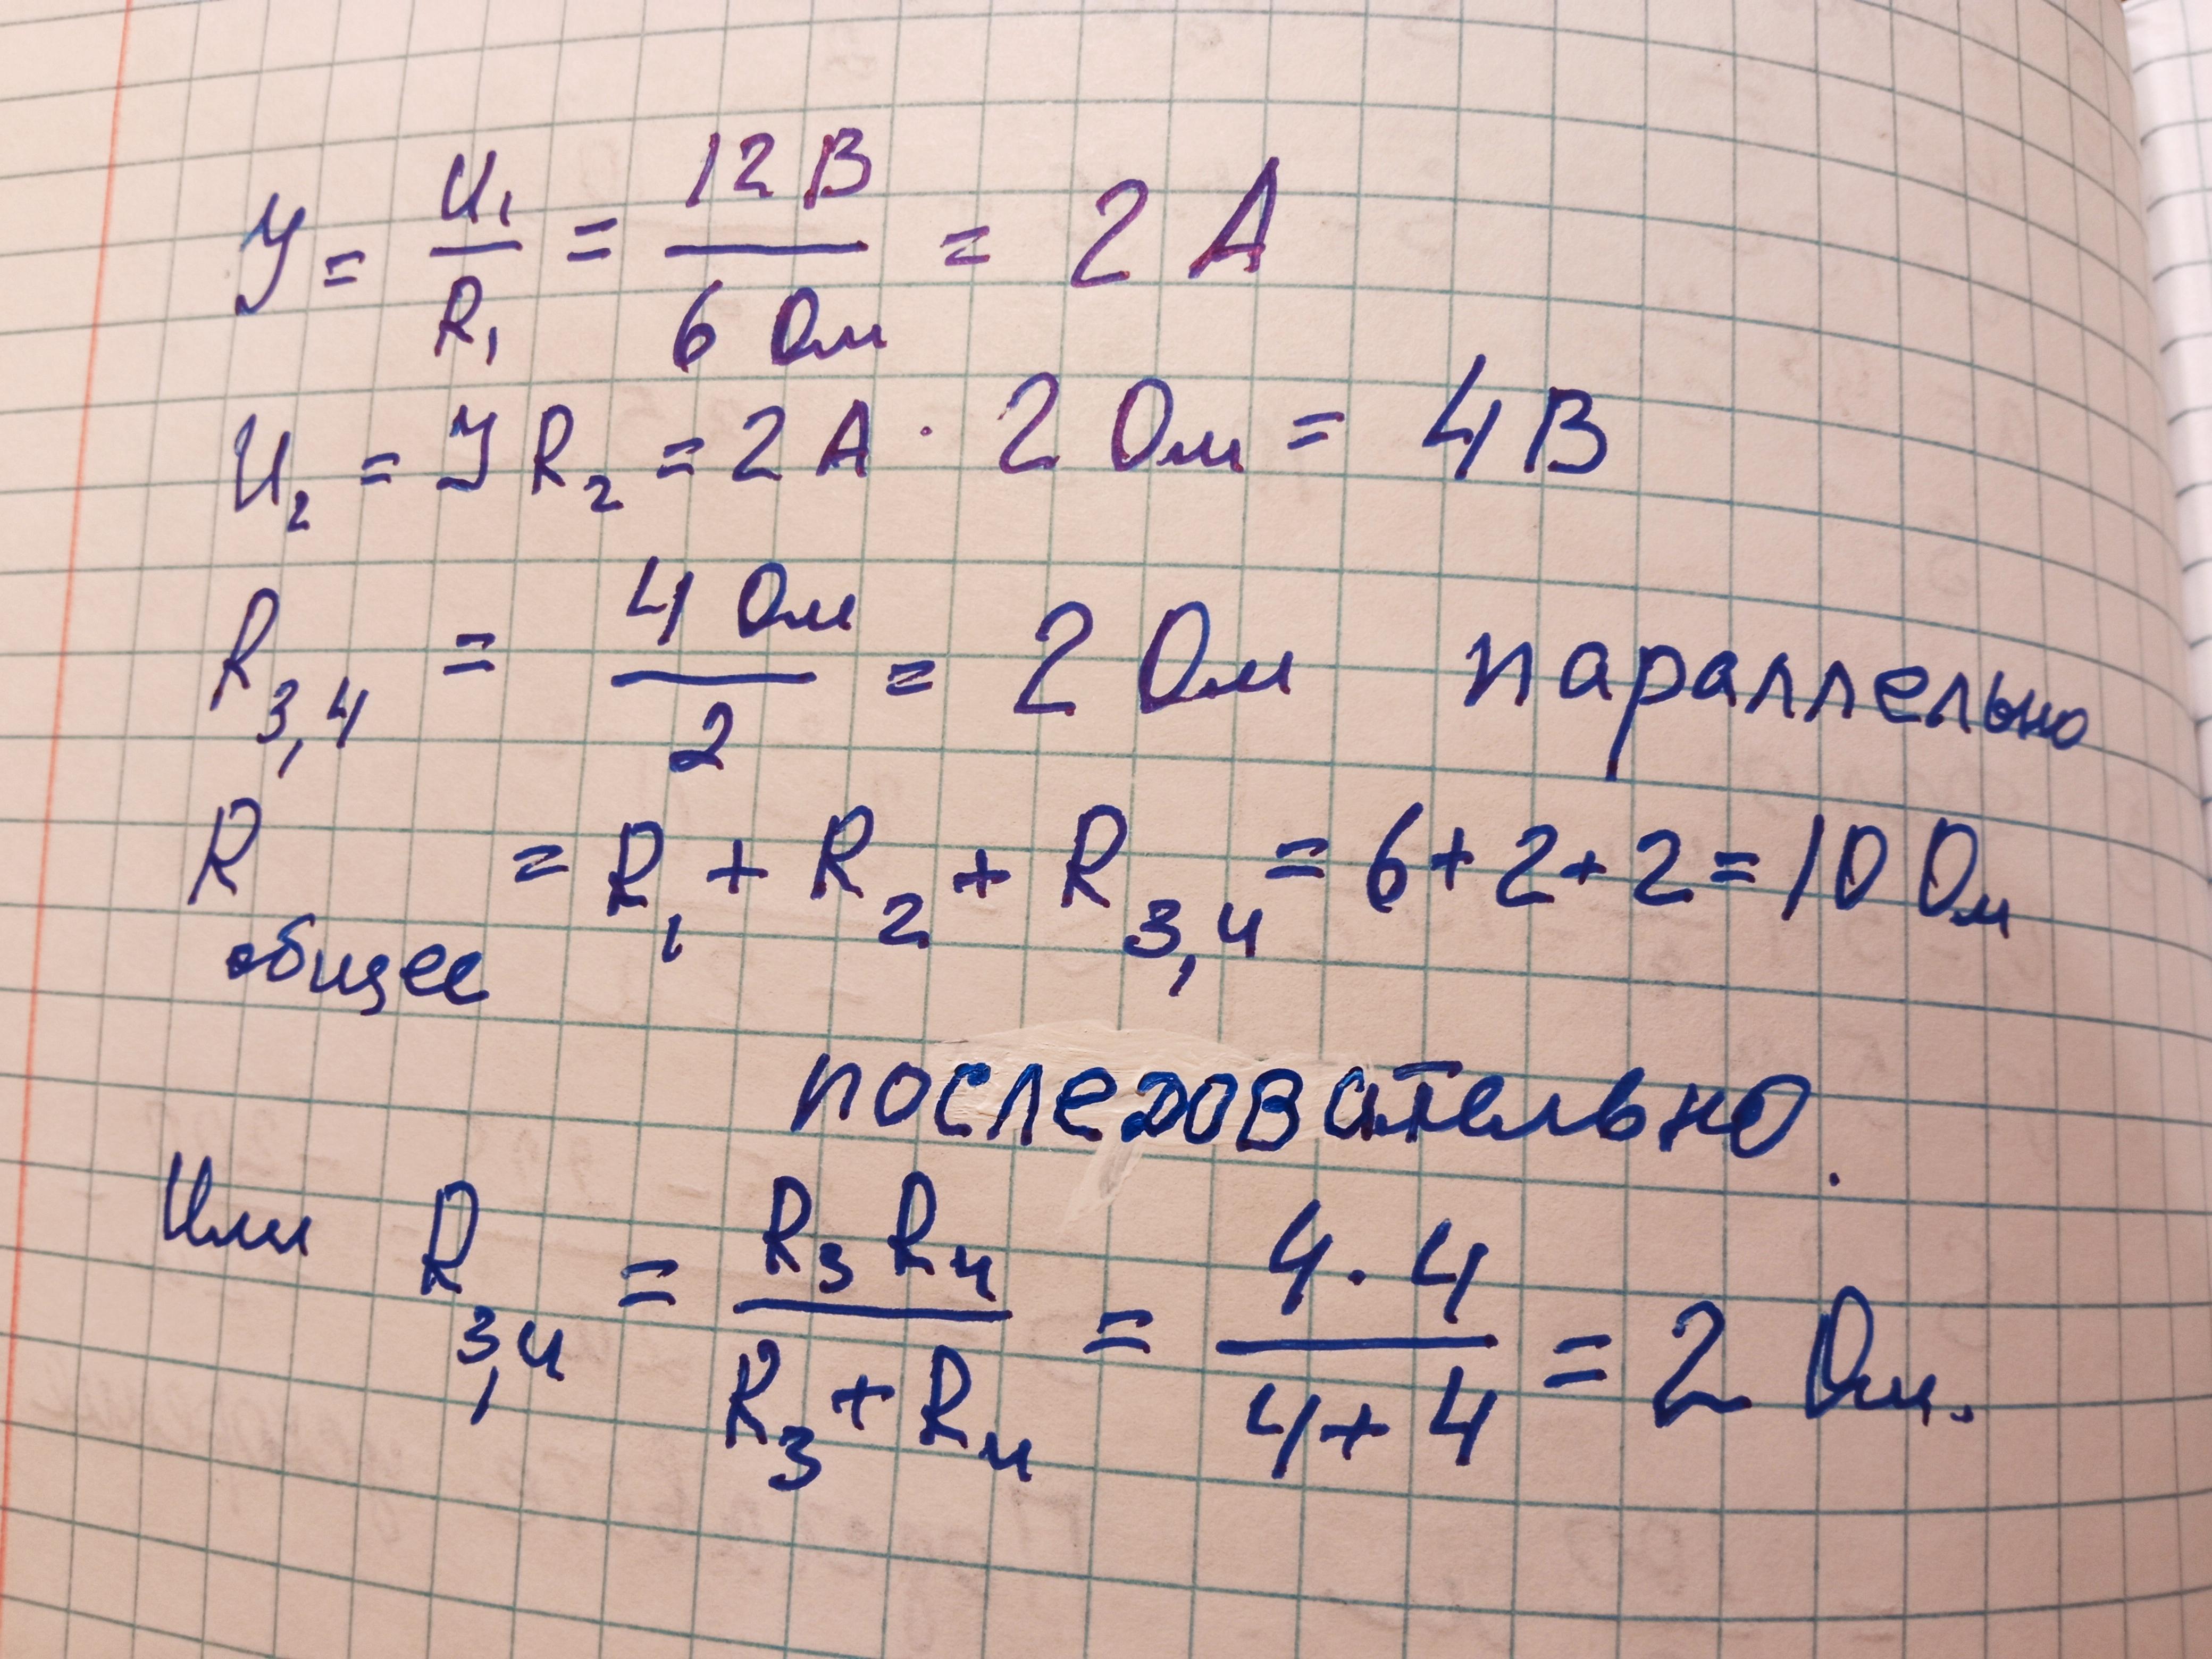 У = U₁/R₁ = 12 В/6 Ом = 2 А
U₂ = У R₂ = 2 А · 2 Ом = 4 В
R₃,₄ = 4 Ом/2 = 2 Ом параллельно
R общее = R₁ + R₂ + R₃,₄ = 6+2+2=10 Ом
последовательно.
Или R₃,₄ = R₃ R₄/R₃+R₄ = 4·4/4+4 = 2 Ом.